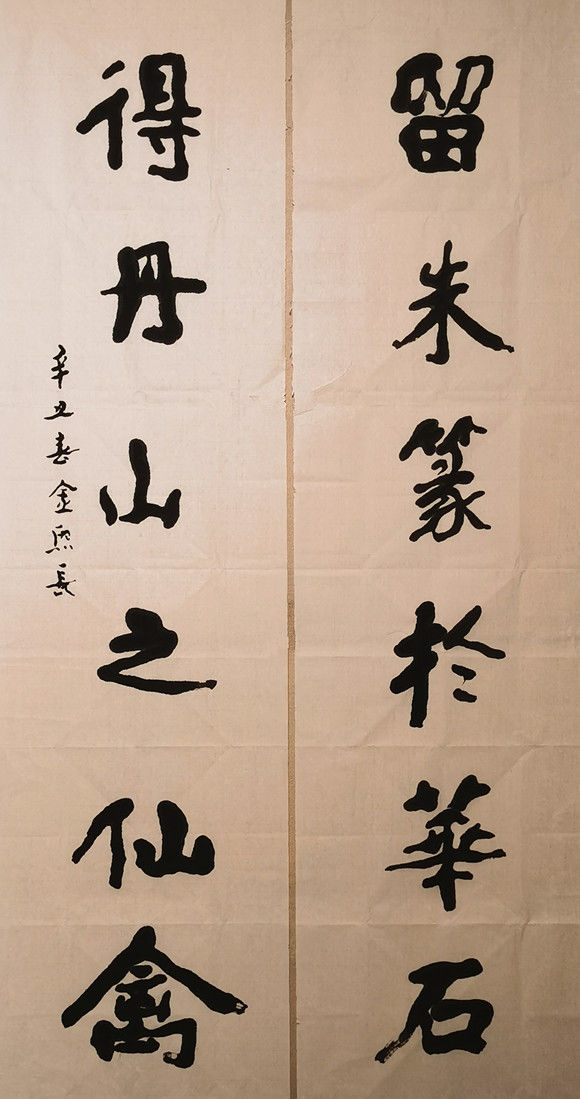 留朱篆於華石
得丹山之仙禽
辛丑春金熙長